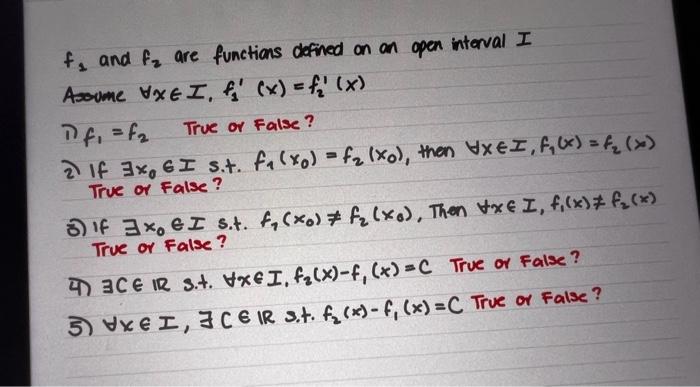 f₁ and f₂ are functions defined on an open interval I
Assume ∀x∈I, f₁'(x) = f₂'(x)
1) f₁ = f₂ True or False?
2) If ∃x₀ ∈ I s.t. f₁(x₀) = f₂(x₀), then ∀x∈I, f₁(x) = f₂(x)
True or False?
3) If ∃x₀ ∈ I s.t. f₁(x₀) ≠ f₂(x₀), Then ∀x∈I, f₁(x) ≠ f₂(x)
True or False?
4) ∃C∈ℝ s.t. ∀x∈I, f₂(x)-f₁(x) = C True or False?
5) ∀x∈I, ∃C∈ℝ s.t. f₂(x)-f₁(x) = C True or False?